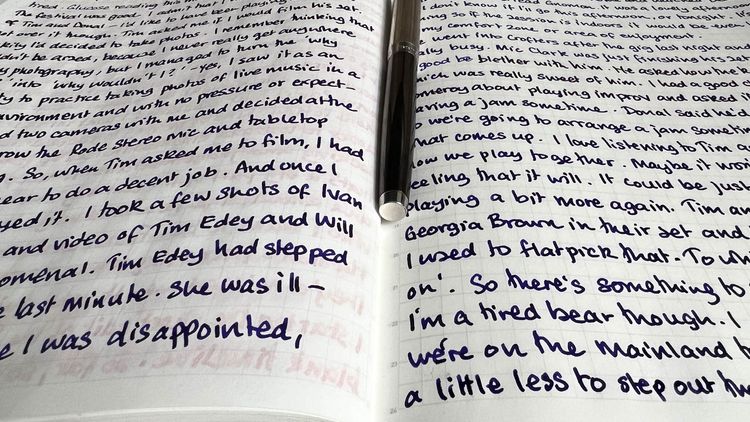 tired.
The festival was good. I admit that I
of Tim and Donal. I'd like to have been playing
it over it though. Tim asked me if I would film his set.
I'd decided to take photos. I remember thinking that
be arsed, because I never really get anywhere
photography, but I managed to turn the 'why
into 'why wouldn't I?' Yes, I saw it as an
to practice taking photos of live music in a
environment and with no pressure or expect-
two cameras with me and decided at the
row the Rode Stereo Mic and tabletop
. So, when Tim asked me to film, I had
ear to do a decent job. And once I
yed it. I took a few shots of Ivan
and video of Tim Edey and Will
omenal. Tim Edey had stepped
last minute. She was ill –
I was disappointed,
so if the session is indoors. It would be
my comfort zone, or area of enjoyment.
went into Crofters after the gig last night and
ally busy. Mic Clark was just finishing his set
good be blether with him. He asked how the
hich was really sweet of him. I had a good
omeroy about playing improv and asked
aving a jam sometime. Donal said he'd
o we're going to arrange a jam sometim
that comes up. I love listening to Tim a
how we play together. Maybe it wo
eeling that it will. It could be just
playing a bit more again. Tim an
Georgia Brown in their set and
I used to flatpick that. 'To wh
on'. So there's something to
I'm a tired bear though. I
we're on the mainland
a little less to step out